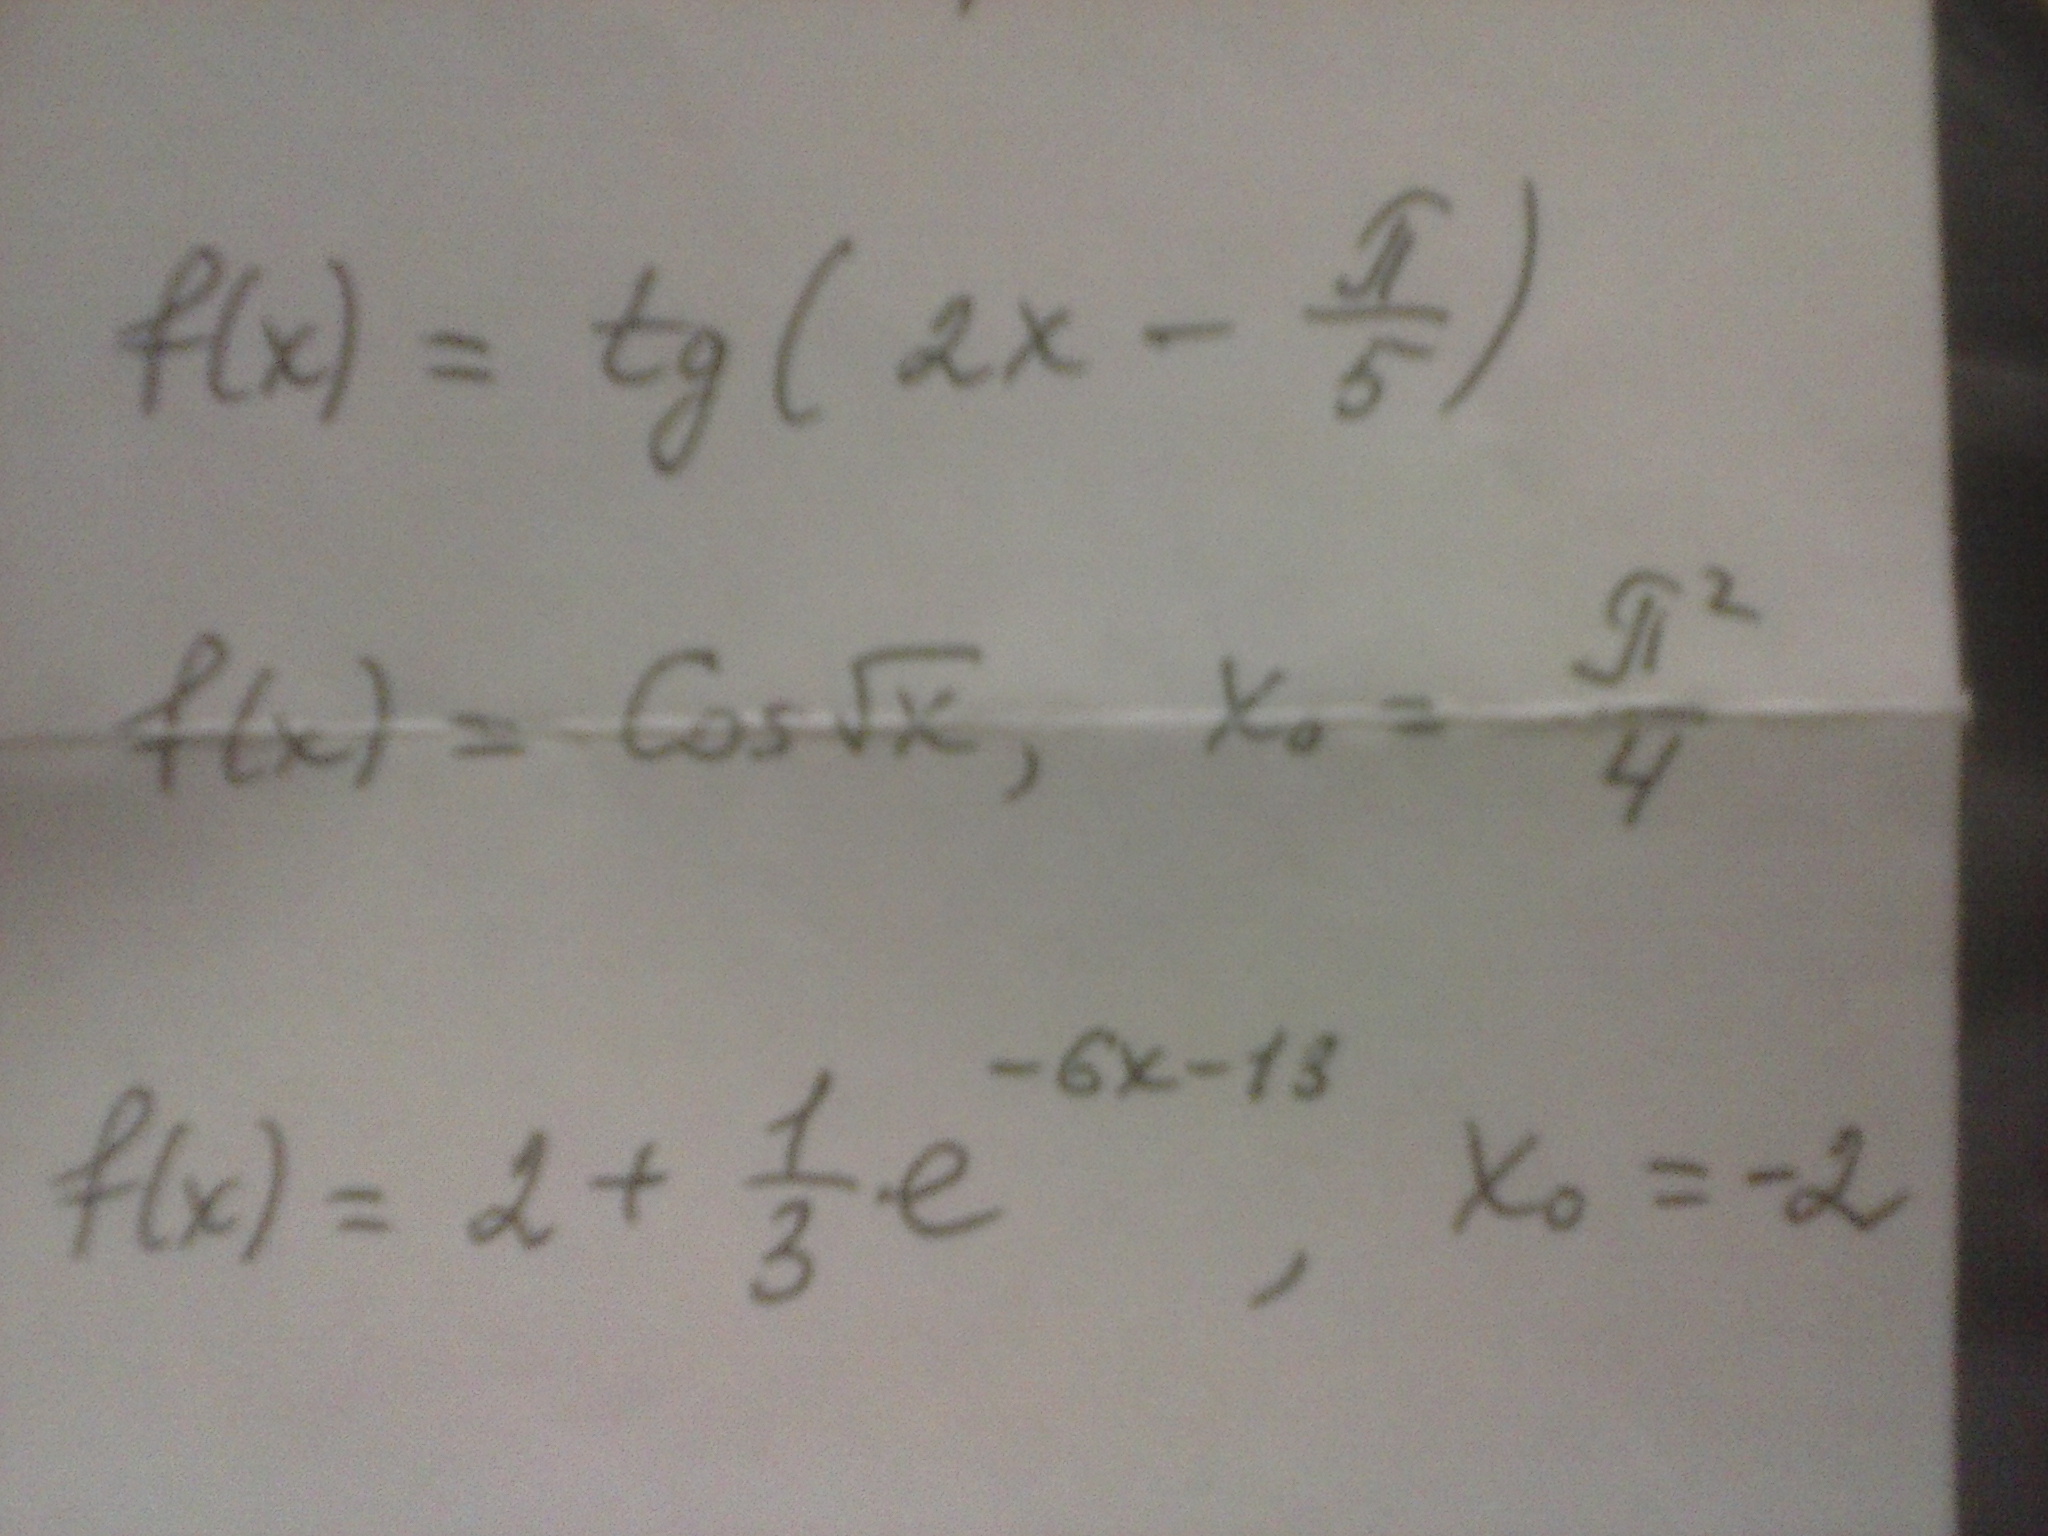 f(x) = tg(2x - π/5)
f(x) = Cos√x, x₀ = π²/4
f(x) = 2 + 1/3 e^(-6x-13), x₀ = -2